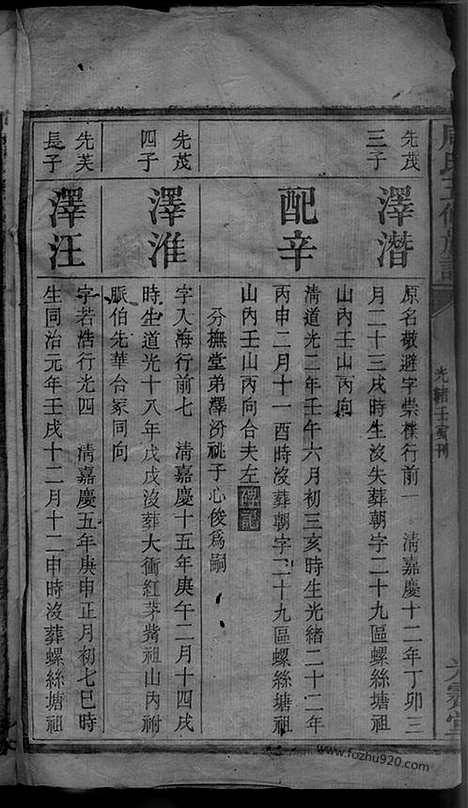 周氏五修族譜
光緒壬寅刊
先茂
三子
澤潛
原名敬避字崇樸行前一　清嘉慶十二年丁卯三
月二十三戌時生沒失葬朝字二十九區螺絲塘祖
山內壬山丙向
配辛
清道光二年壬午六月初三亥時生光緒二十二年
丙申二月十一酉時沒葬朝字二十九區螺絲塘祖
山內壬山丙向合夫左
分撫堂弟澤汾祧子心俊為嗣
先茂
四子
澤淮
字入海行前七　清嘉慶十五年庚午二月十四戌
時生道光十八年戊戌沒葬大衝紅茅觜祖山內祔
脈伯先華台冢同向
先芙
長子
澤汪
字若浩行光四　清嘉慶五年庚申正月初七巳時
生同治元年壬戌十二月十二申時沒葬螺絲塘祖
www.fozhu920.com